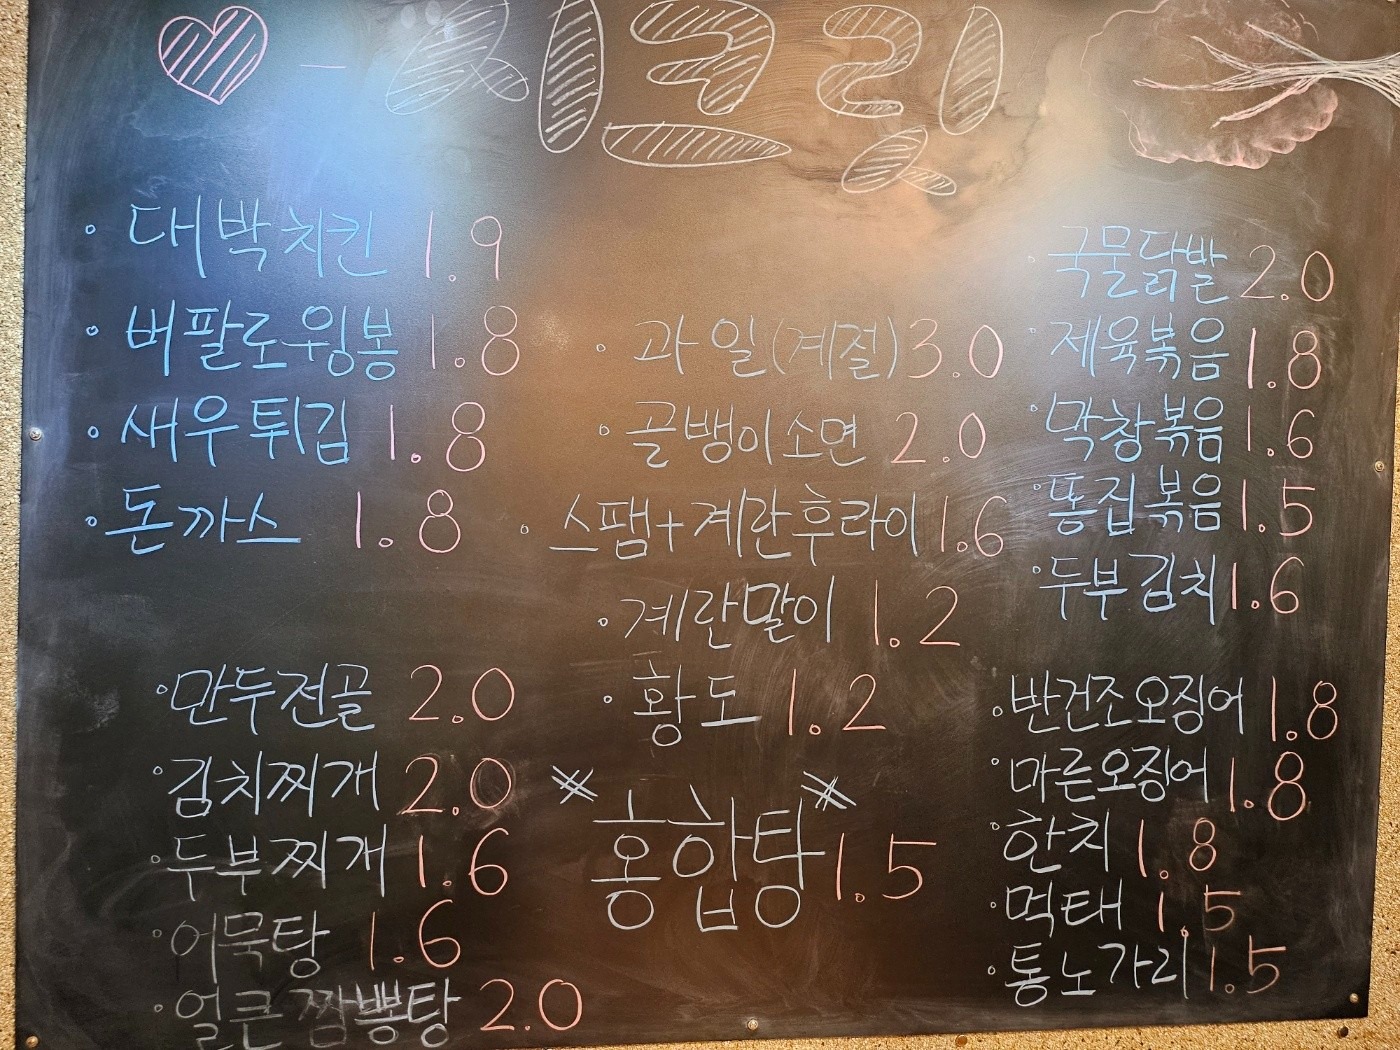 시크릿
• 대박치킨 1.9
• 버팔로윙봉 1.8
• 새우튀김 1.8
• 돈까스 1.8
• 만두전골 2.0
• 김치찌개 2.0
• 두부찌개 1.6
• 어묵탕 1.6
• 얼큰짬뽕탕 2.0
• 과일(계절) 3.0
• 골뱅이소면 2.0
• 스팸+계란후라이 1.6
• 계란말이 1.2
• 황도 1.2
※홍합탕※ 1.5
• 국물닭발 2.0
• 제육볶음 1.8
• 막창볶음 1.6
• 똥집볶음 1.5
• 두부김치 1.6
• 반건조오징어 1.8
• 마른오징어 1.8
• 한치 1.8
• 먹태 1.5
• 통노가리 1.5